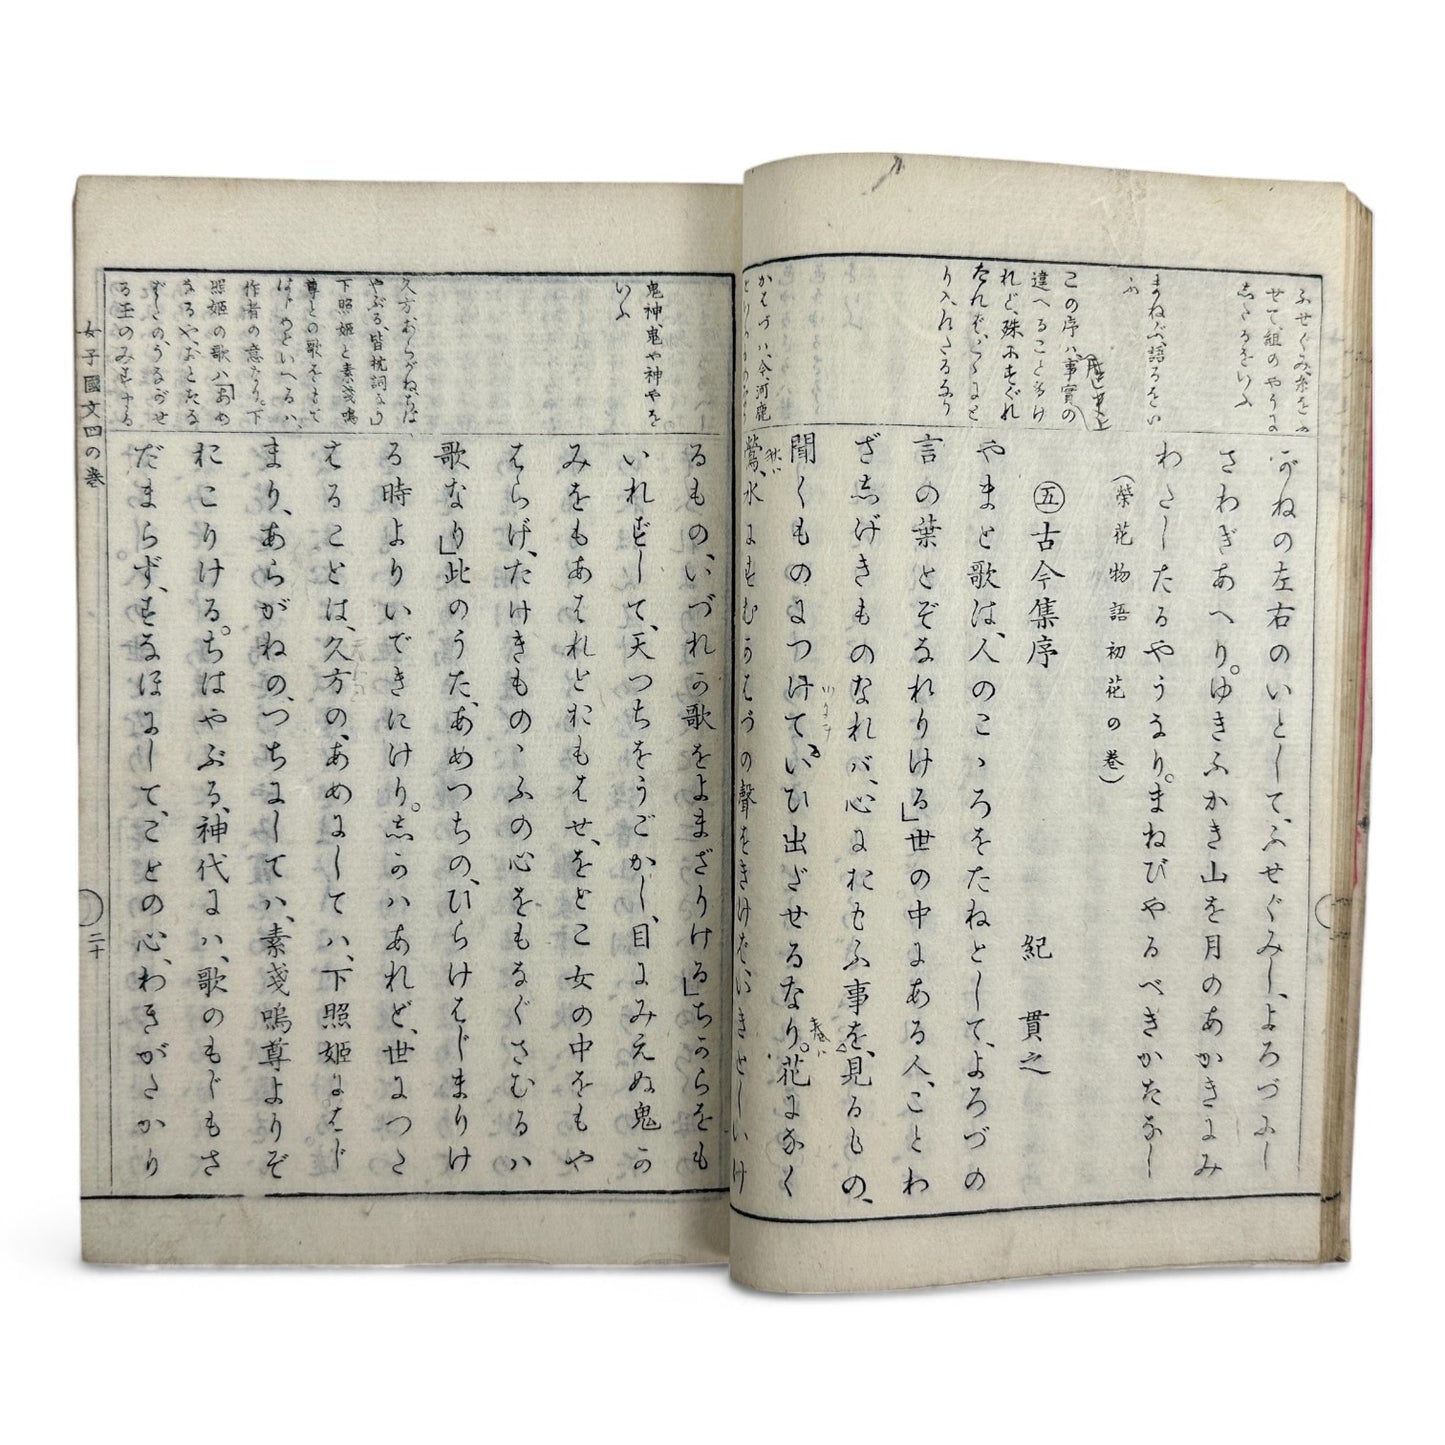 ふせぐみ、糸をふ
せて、組のやうに
したるをいふ
まねぶ、語るをい
ふ
この序ハ、事實の
違へること多け
れど、殊にすぐれ
たれば、こゝにと
り入れたるなり
かはづハ、今、河鹿
がねの左右のいとして、ふせぐみし、よろづにし
さわぎあへり。ゆきふかき山を月のあかきにみ
わたしたるやうなり。まねびやるべきかたなし
(榮花物語初花の巻)
㊄古今集序
紀貫之
やまと歌は、人のこゝろをたねとして、よろづの
言の葉とぞなれりける」世の中にある人、ことわ
ざしげきものなれバ、心におもふ事を、見るもの、
聞くものにつけて、いひ出ざせるなり。花になく
鶯、水にすむかはづの聲をきけば、いきとしいけ
鬼神、鬼や神やを
いふ
久方、あらがね、ちは
やぶる、皆枕詞なり
下照姫と素戔嗚
尊との歌をもて
はじめといへるハ
作者の意なり。下
照姫の歌ハ「あめ
なるや、おとたな
ばたの、うながせ
る玉のみすまる
るもの、いづれか歌をよまざりける」ちからをも
いれずして、天つちをうごかし、目にみえぬ鬼か
みをもあはれとおもはせ、をとこ女の中をもや
はらげ、たけきものゝふの心をもなぐさむるハ
歌なり」此のうた、あめつちの、ひらけはじまりけ
る時よりいできにけり。しかハあれど、世につた
はることは、久方の、あめにしてハ、下照姫にはじ
まり、あらがねの、つちにしてハ、素戔嗚尊よりぞ
おこりける。ちはやぶる、神代にハ、歌のもじもさ
だまらず、すなほにして、ことの心、わきがたかり
女子國文四の巻
二十